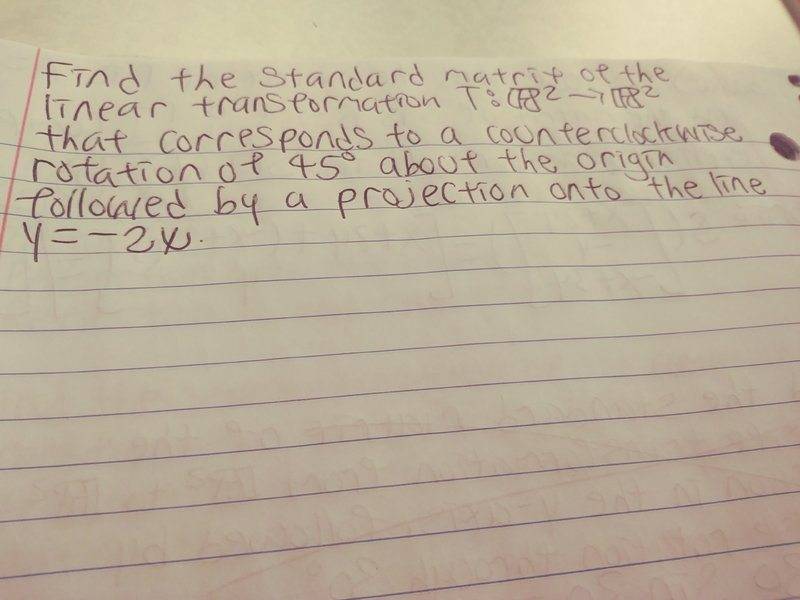 Find the standard matrix of the
linear transformation T: ℝ² → ℝ²
that corresponds to a counterclockwise
rotation of 45° about the origin
followed by a projection onto the line
y = -2x.